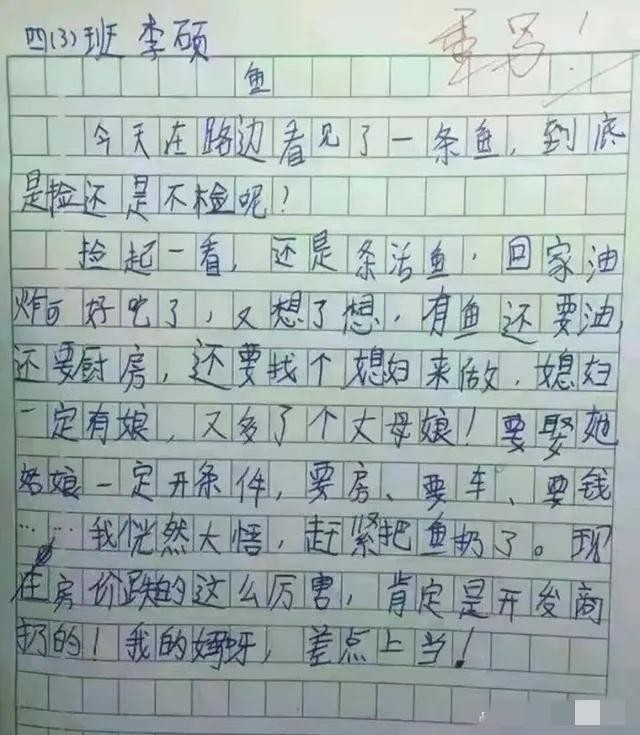 四(3)班 李硕
重写!
鱼
今天在路边看见了一条鱼,到底
是捡还是不检呢?
捡起一看,还是条活鱼.回家油
炸可好吃了,又想了想,有鱼还要油,
还要厨房,还要找个媳妇来做.媳妇
一定有娘,又多了个丈母娘!要娶她
姑娘一定开条件,要房、要车、要钱
……我恍然大悟,赶紧把鱼扔了。现
在房价跌的这么厉害,肯定是开发商
扔的!我的妈呀,差点上当!